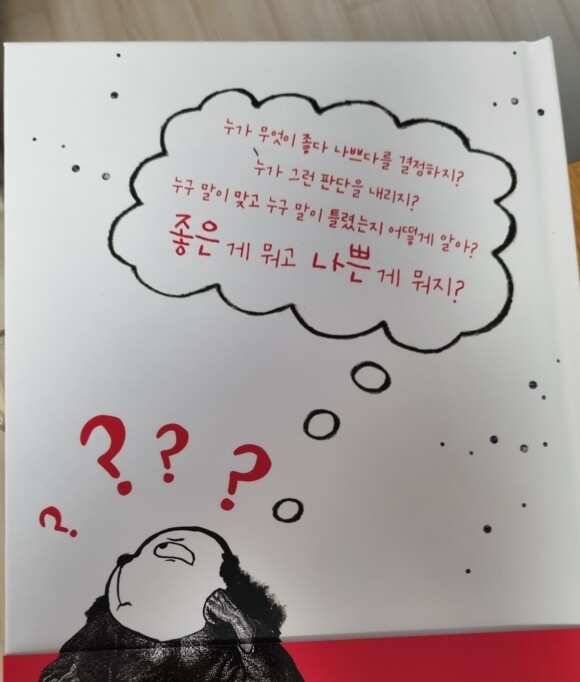 누가 무엇이 좋다 나쁘다를 결정하지?
누가 그런 판단을 내리지?
누구 말이 맞고 누구 말이 틀렸는지 어떻게 알아?
좋은 게 뭐고 나쁜 게 뭐지?
? ? ?
?